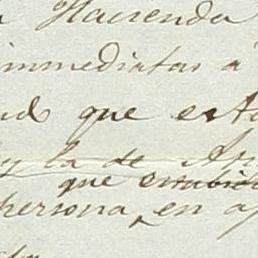 Hacienda
immediatas a
que esta
y la de
que
persona, en